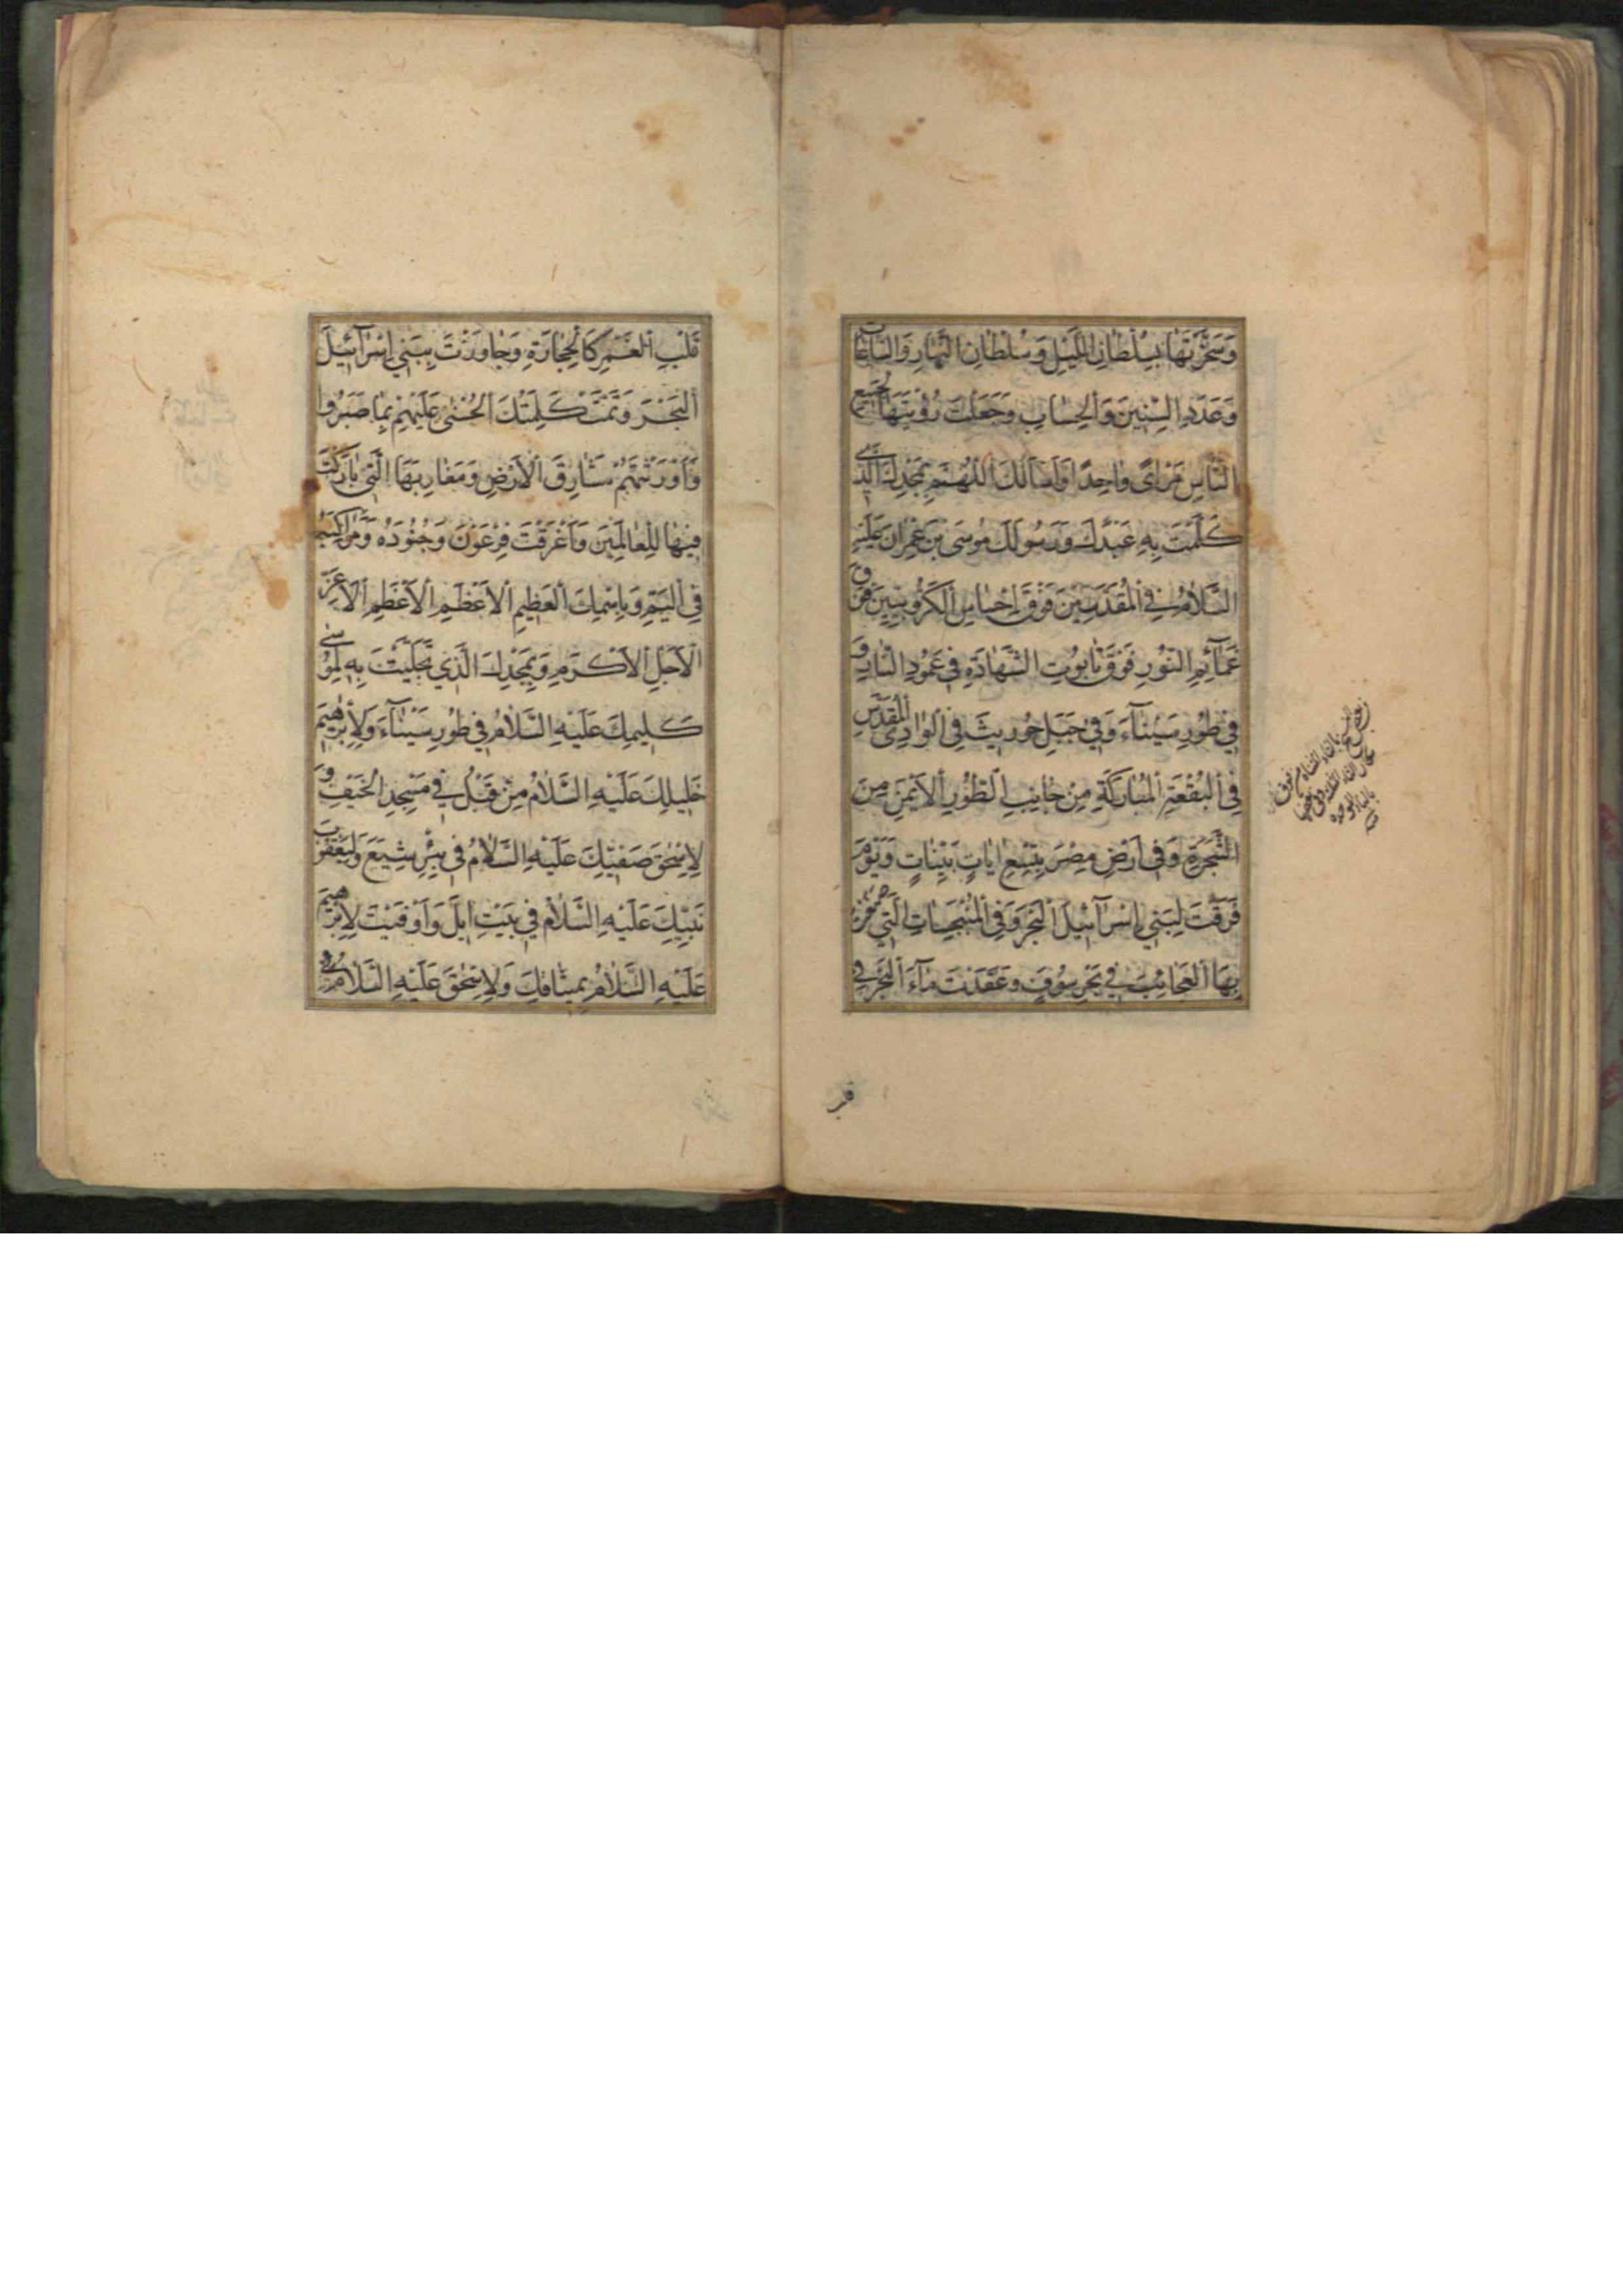 وَسَخَّرْتَهَا بِسُلْطَانِ اللَّيْلِ وَسُلْطَانِ النَّهَارِ وَالسَّاعَاتِ
وَعَدَدِ السِّنِينَ وَالْحِسَابِ وَجَعَلْتَ رُؤْيَتَهَا لِجَمِيعِ
النَّاسِ مَرْاىً وَاحِدًا وَاَسْاَلُكَ اللّٰهُمَّ بِمَجْدِكَ الَّذِي
كَلَّمْتَ بِهِ عَبْدَكَ وَرَسُولَكَ مُوسَى بْنَ عِمْرَانَ عَلَيْهِ
السَّلَامُ فِي الْمُقَدَّسِينَ فَوْقَ اِحْسَاسِ الْكَرُّوبِيِّينَ فَوْقَ
غَمَائِمِ النُّورِ فَوْقَ تَابُوتِ الشَّهَادَةِ فِي عَمُودِ النَّارِ وَ
فِي طُورِ سَيْنَآءَ وَفِي جَبَلِ حُورِيثَ فِي الْوَادِي الْمُقَدَّسِ
فِي الْبُقْعَةِ الْمُبَارَكَةِ مِنْ جَانِبِ الطُّورِ الْاَيْمَنِ مِنَ
الشَّجَرَةِ وَفِي اَرْضِ مِصْرَ بِتِسْعِ اٰيَاتٍ بَيِّنَاتٍ وَيَوْمَ
فَرَقْتَ لِبَنِي اِسْرَآئِيلَ الْبَحْرَ وَفِي الْمُنْبَجِسَاتِ الَّتِي صَنَعْتَ
بِهَا الْعَجَائِبَ فِي بَحْرِ سُوفٍ وَعَقَدْتَ مَآءَ الْبَحْرِ فِي
قلب
قَلْبِ الْغَمْرِ كَالْحِجَارَةِ وَجَاوَزْتَ بِبَنِي اِسْرَآئِيلَ
الْبَحْرَ وَتَمَّتْ كَلِمَتُكَ الْحُسْنٰى عَلَيْهِمْ بِمَا صَبَرُوا
وَاَوْرَثْتَهُمْ مَشَارِقَ الْاَرْضِ وَمَغَارِبَهَا الَّتِي بَارَكْتَ
فِيهَا لِلْعَالَمِينَ وَاَغْرَقْتَ فِرْعَوْنَ وَجُنُودَهُ وَمَرَاكِبَهُ
فِي الْيَمِّ وَبِاسْمِكَ الْعَظِيمِ الْاَعْظَمِ الْاَعْظَمِ الْاَعَزِّ
الْاَجَلِّ الْاَكْرَمِ وَبِمَجْدِكَ الَّذِي تَجَلَّيْتَ بِهِ لِمُوسٰى
كَلِيمِكَ عَلَيْهِ السَّلَامُ فِي طُورِ سَيْنَآءَ وَلِاِبْرٰهِيمَ
خَلِيلِكَ عَلَيْهِ السَّلَامُ مِنْ قَبْلُ فِي مَسْجِدِ الْخَيْفِ وَ
لِاِسْحٰقَ صَفِيِّكَ عَلَيْهِ السَّلَامُ فِي بِئْرِ شِيَعَ وَلِيَعْقُوبَ
نَبِيِّكَ عَلَيْهِ السَّلَامُ فِي بَيْتِ اِيلَ وَاَوْفَيْتَ لِاِبْرٰهِيمَ
عَلَيْهِ السَّلَامُ بِمِيثَاقِكَ وَلِاِسْحٰقَ عَلَيْهِ السَّلَامُ